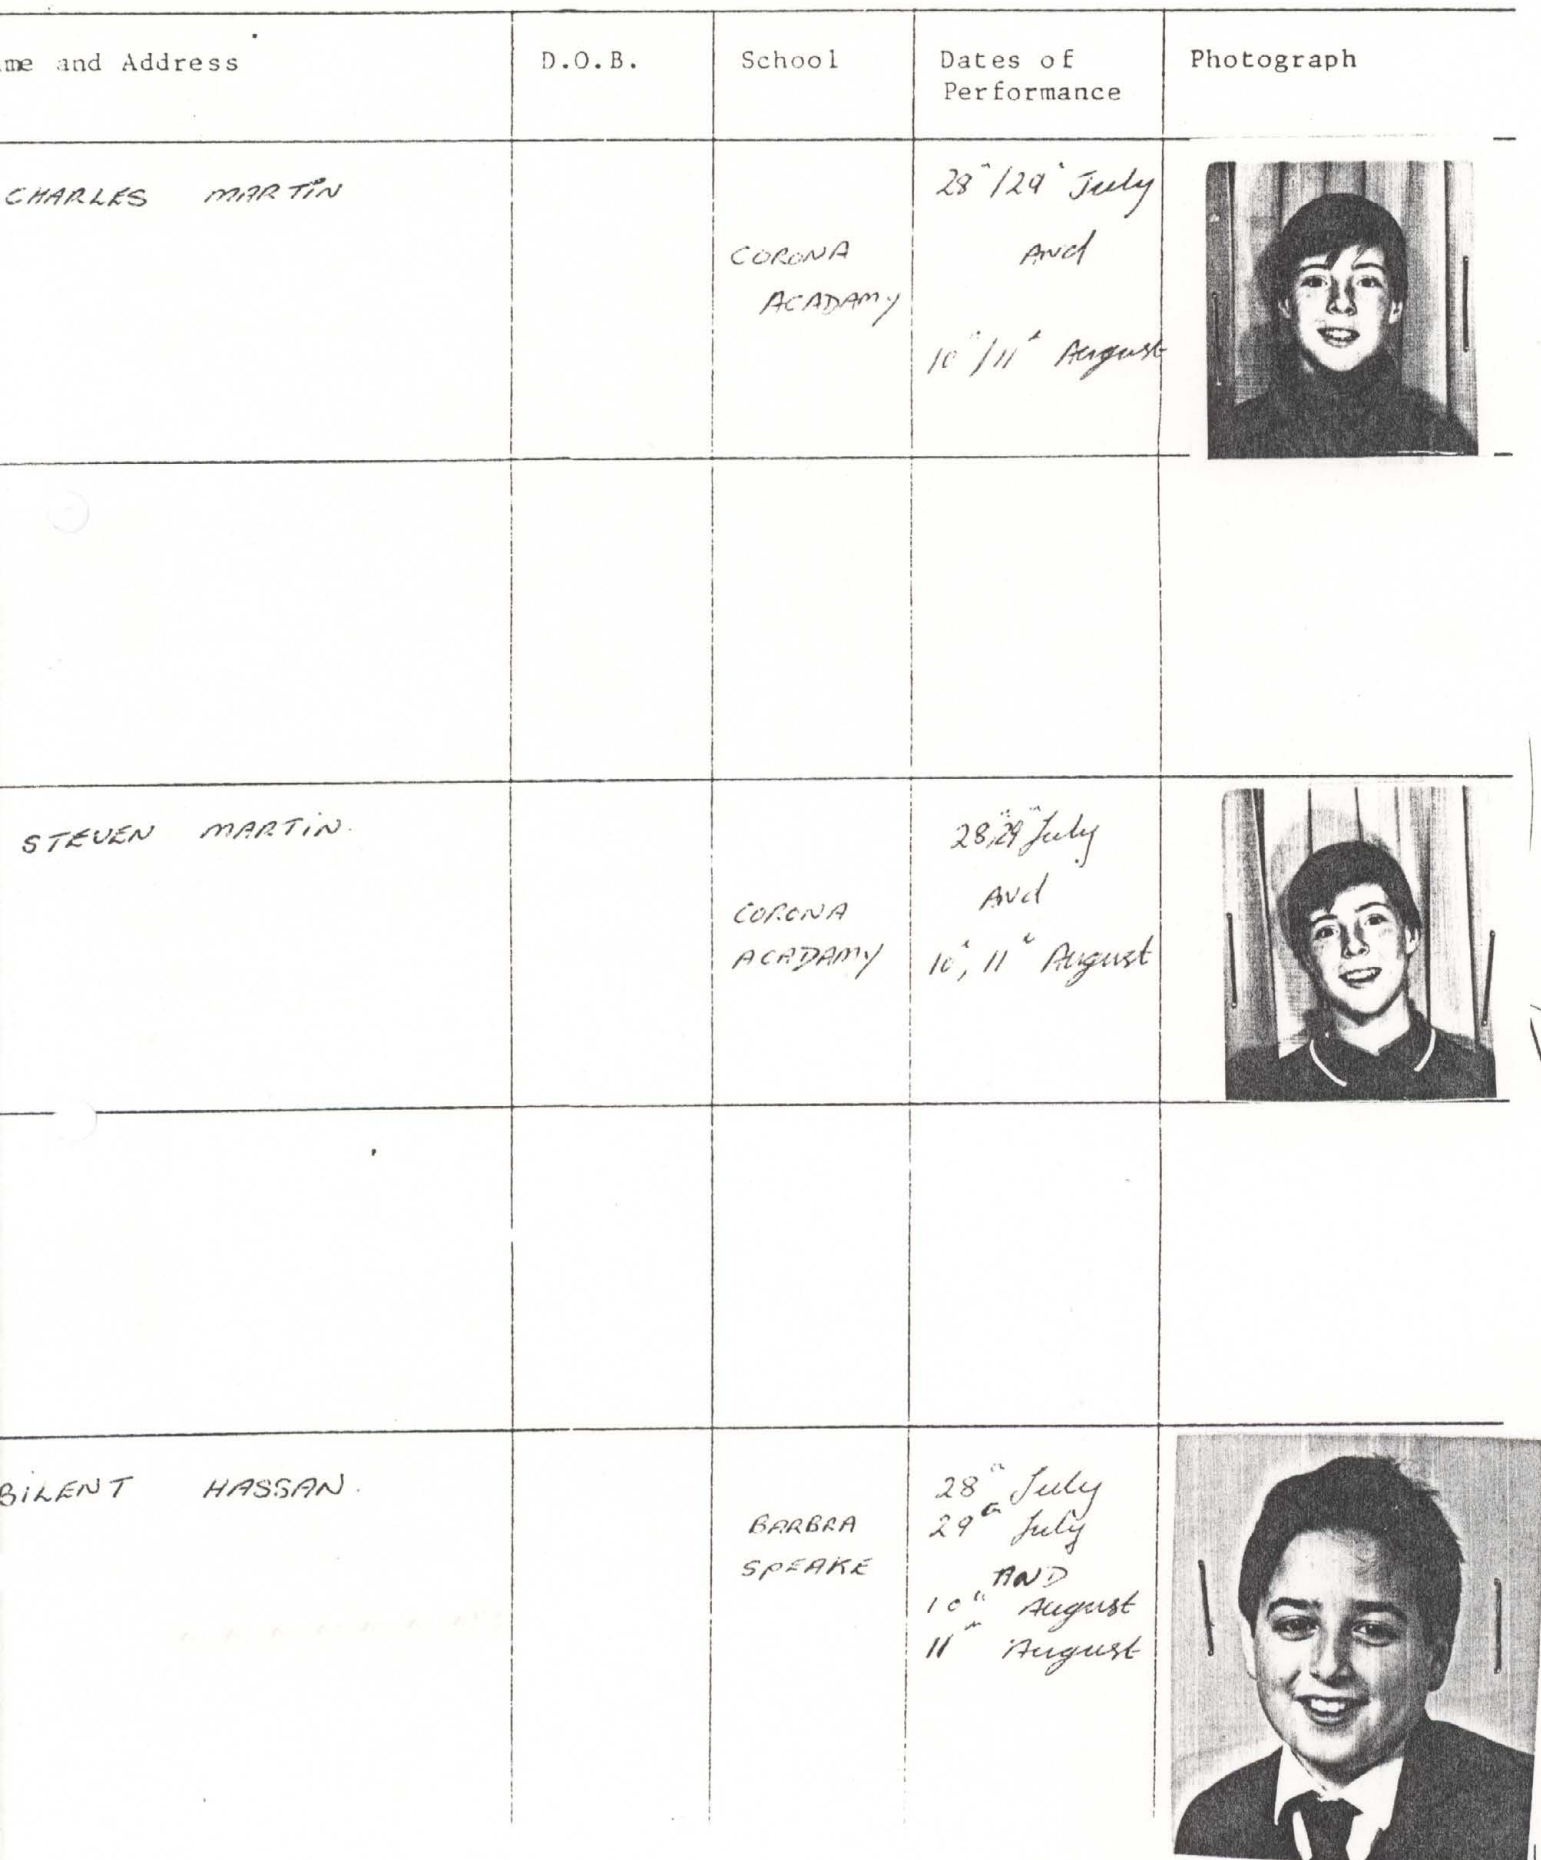 me and Address D.O.B. School Dates of Performance Photograph
CHARLES MARTIN
CORONA
ACADAMY
28"/29" July
And
10"/11" August
STEVEN MARTIN.
CORONA
ACADAMY
28"29" July
And
10", 11" August
BILENT HASSAN.
BARBRA
SPEAKE
28" July
29" July
AND
10" August
11" August